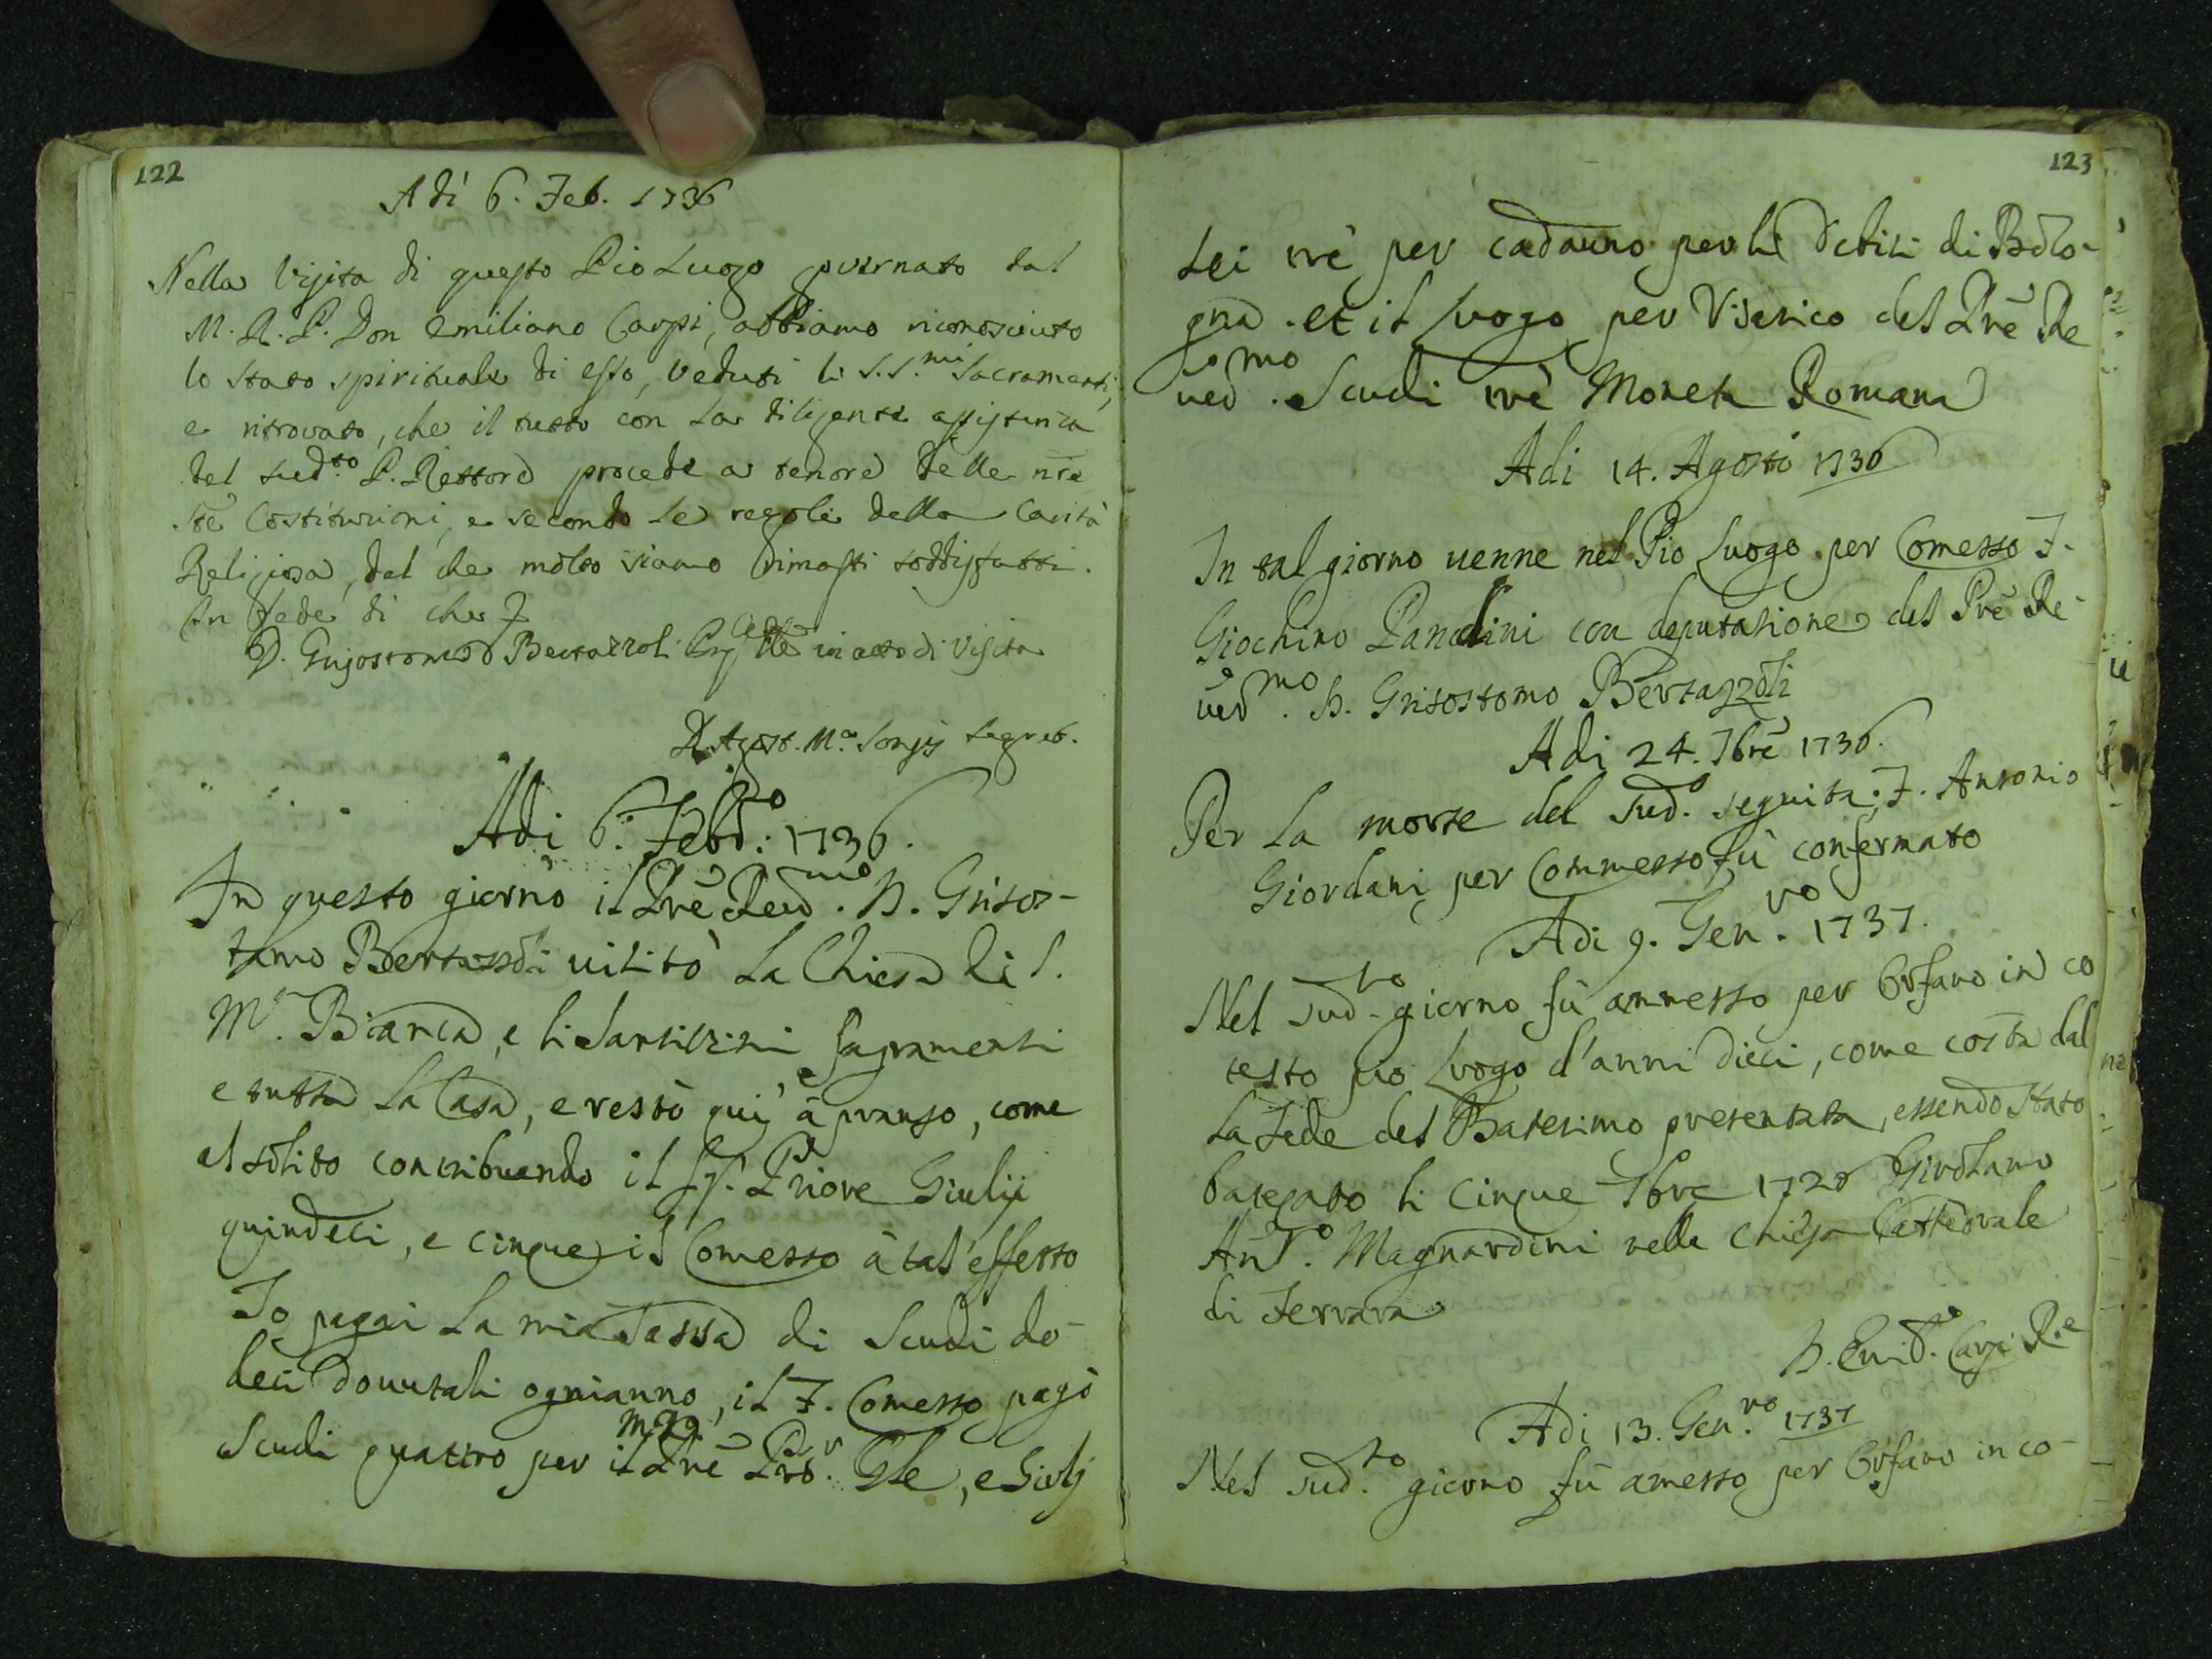 122
Adì 6. Feb. 1736
Nella Visita di questo Pio Luogo governato dal
M. R. P. Don Emiliano Carpi, abbiamo riconosciuto
lo stato spirituale di esso, veduti li S.S.mi Sacramenti,
e ritrovato, che il tutto con la diligente assistenza
del sud.to P. Rettore procede a tenore delle nr̃e
Costituzioni, e secondo le regole della Carità
Religiosa, del che molto siamo rimasti soddisfatti.
In fede di che
D. Grisostomo Bertazzoli in atto di Visita
D. Agost. M.a Segret.
Adi 6. Feb.o: 1736.
In questo giorno il Prẽ Reud.mo D. Grisos-
tomo Bertazzoli uisitò la Chiesa di S.
M.a Bianca, e li Santissimi Sagramenti
e tutta la Casa, e restò qui à pranso, come
al solito contribuendo il Sig. Priore Giulij
quindeci, e cinque il Comesso à tal'effetto
Io pagai la mia Tassa di Scudi do-
deci douutali ogni anno, il F. Comesso pagò
Scudi quattro per il Prẽ Gle, e Giulij
123
sei trè per cadauno per li Debiti di Bolo-
gna. et il Luogo per Viatico del Prẽ Re
ued.mo Scudi trè Moneta Romana
Adi 14. Agosto 1736
In tal giorno uenne nel Pio Luogo per Comesso F.
Giochino Pandini con deputatione del Prẽ Re-
ued.mo D. Grisostomo Bertazzoli
Adi 24. 7brẽ 1736.
Per la morte del sud.o seguita; F. Antonio
Giordani per Commesso fù confermato
Adi 9. Gen.ro 1737.
Nel sud.to giorno fù ammesso per Orfano in co
testo pio Luogo d'anni dieci, come costa dal
la Fede del Batesimo presentata, essendo stato
batezato li cinque 7bre 1726 Girolamo
Ant.o Magnardini nella Chiesa Cattedrale
di Ferrara
D. Emil.o Carpi R.e
Adi 13. Gen.ro 1737
Nel sud.to giorno fù amesso per Orfano in co-